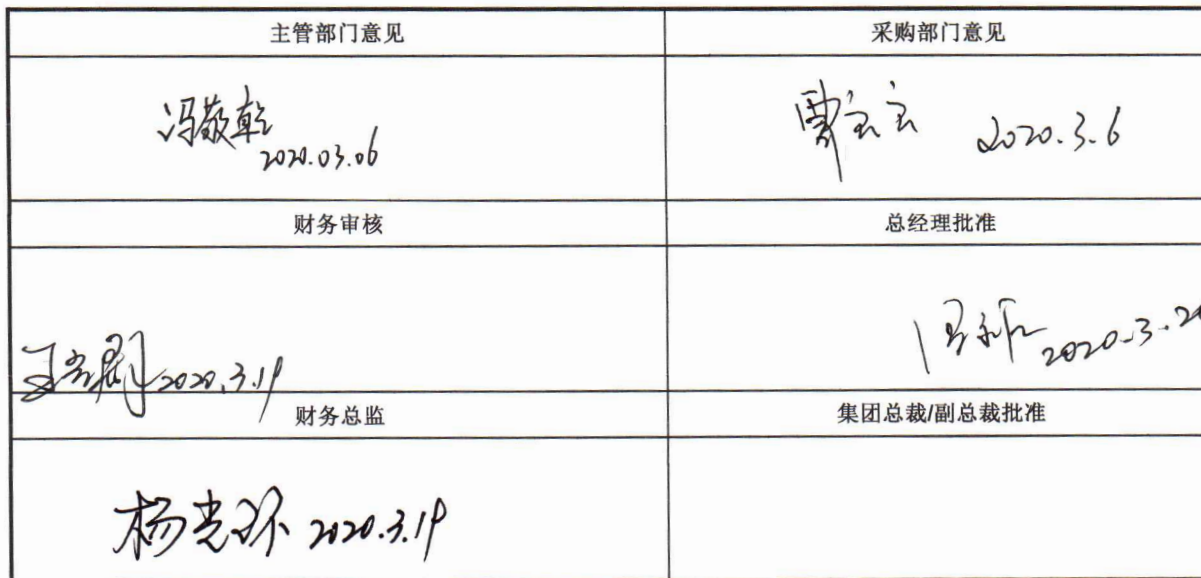 主管部门意见
采购部门意见
冯敬乾
2020.03.06
2020.3.6
财务审核
总经理批准
2020.3.19
2020.3.20
财务总监
集团总裁/副总裁批准
杨光环 2020.3.19